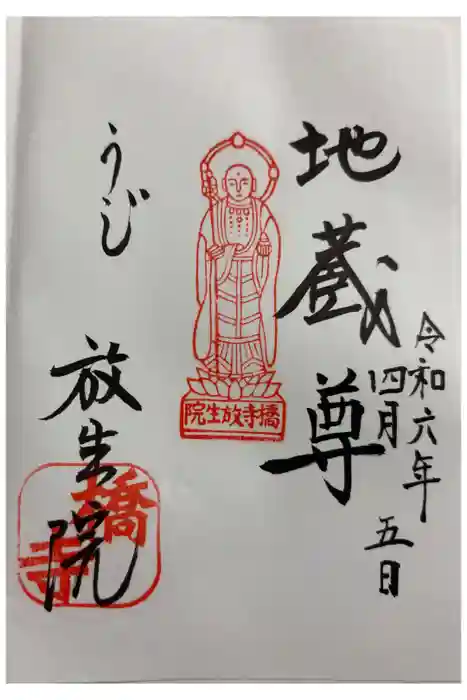 令和六年
四月五日
地蔵尊
橋寺放生院
うじ
放生院
橋寺